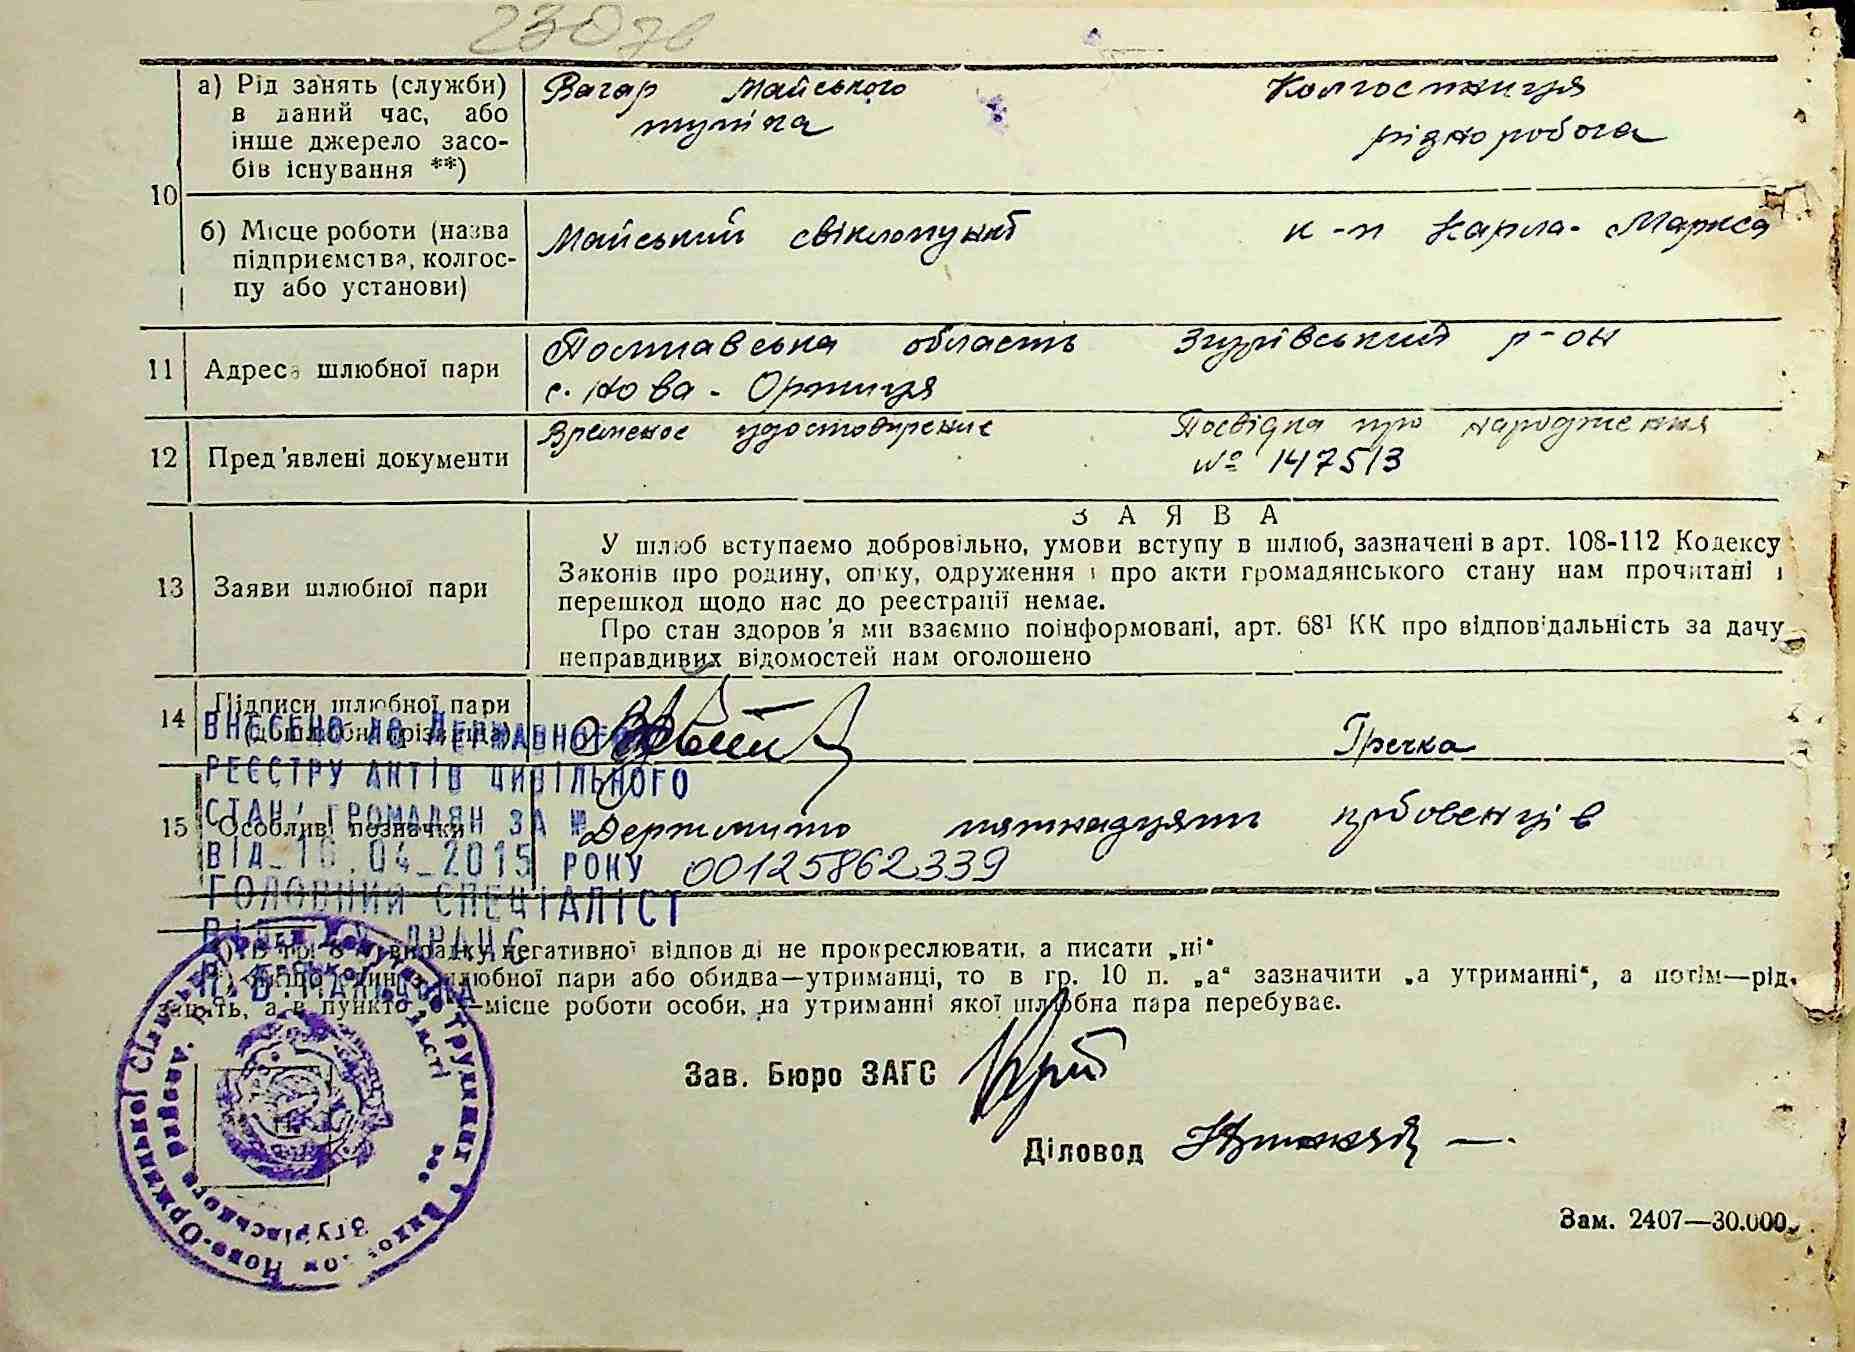 23070
а) Рід занять (служби) в даний час, або інше джерело засобів існування **)
Вагар Майського
тупіка
Колгоспниця
різноробоча
10
б) Місце роботи (назва підприємства, колгоспу або установи)
Майський свіклопункт
к-п Карла-Маркса
11 Адреса шлюбної пари
Полтавська область Згурівський р-он
с. Нова-Оржиця
12 Пред'явлені документи
Временое удостовирение
Посвідка про народження
№ 147513
13 Заяви шлюбної пари
ЗАЯВА
У шлюб вступаємо добровільно, умови вступу в шлюб, зазначені в арт. 108-112 Кодексу
Законів про родину, опіку, одруження і про акти громадянського стану нам прочитані і
перешкод щодо нас до реєстрації немає.
Про стан здоров'я ми взаємно поінформовані, арт. 68¹ КК про відповідальність за дачу
неправдивих відомостей нам оголошено
14 Підписи шлюбної пари
Гречка
15 Особливі позначки
Держмито пятнадцять крбовенців
ВНЕСЕНО ДО ДЕРЖАВНОГО
РЕЄСТРУ АКТІВ ЦИВІЛЬНОГО
СТАНУ ГРОМАДЯН ЗА №
ВІД 10.04.2015 РОКУ 00125862339
ГОЛОВНИЙ СПЕЦІАЛІСТ
ВІДДІЛУ ДРАЦС
негативної відповіді не прокреслювати, а писати „ні“
шлюбної пари або обидва—утриманці, то в гр. 10 п. „а“ зазначити „а утриманні“, а потім—рід
занять, а в пункто —місце роботи особи, на утриманні якої шлюбна пара перебуває.
Зав. Бюро ЗАГС
Діловод
Зам. 2407—30.000